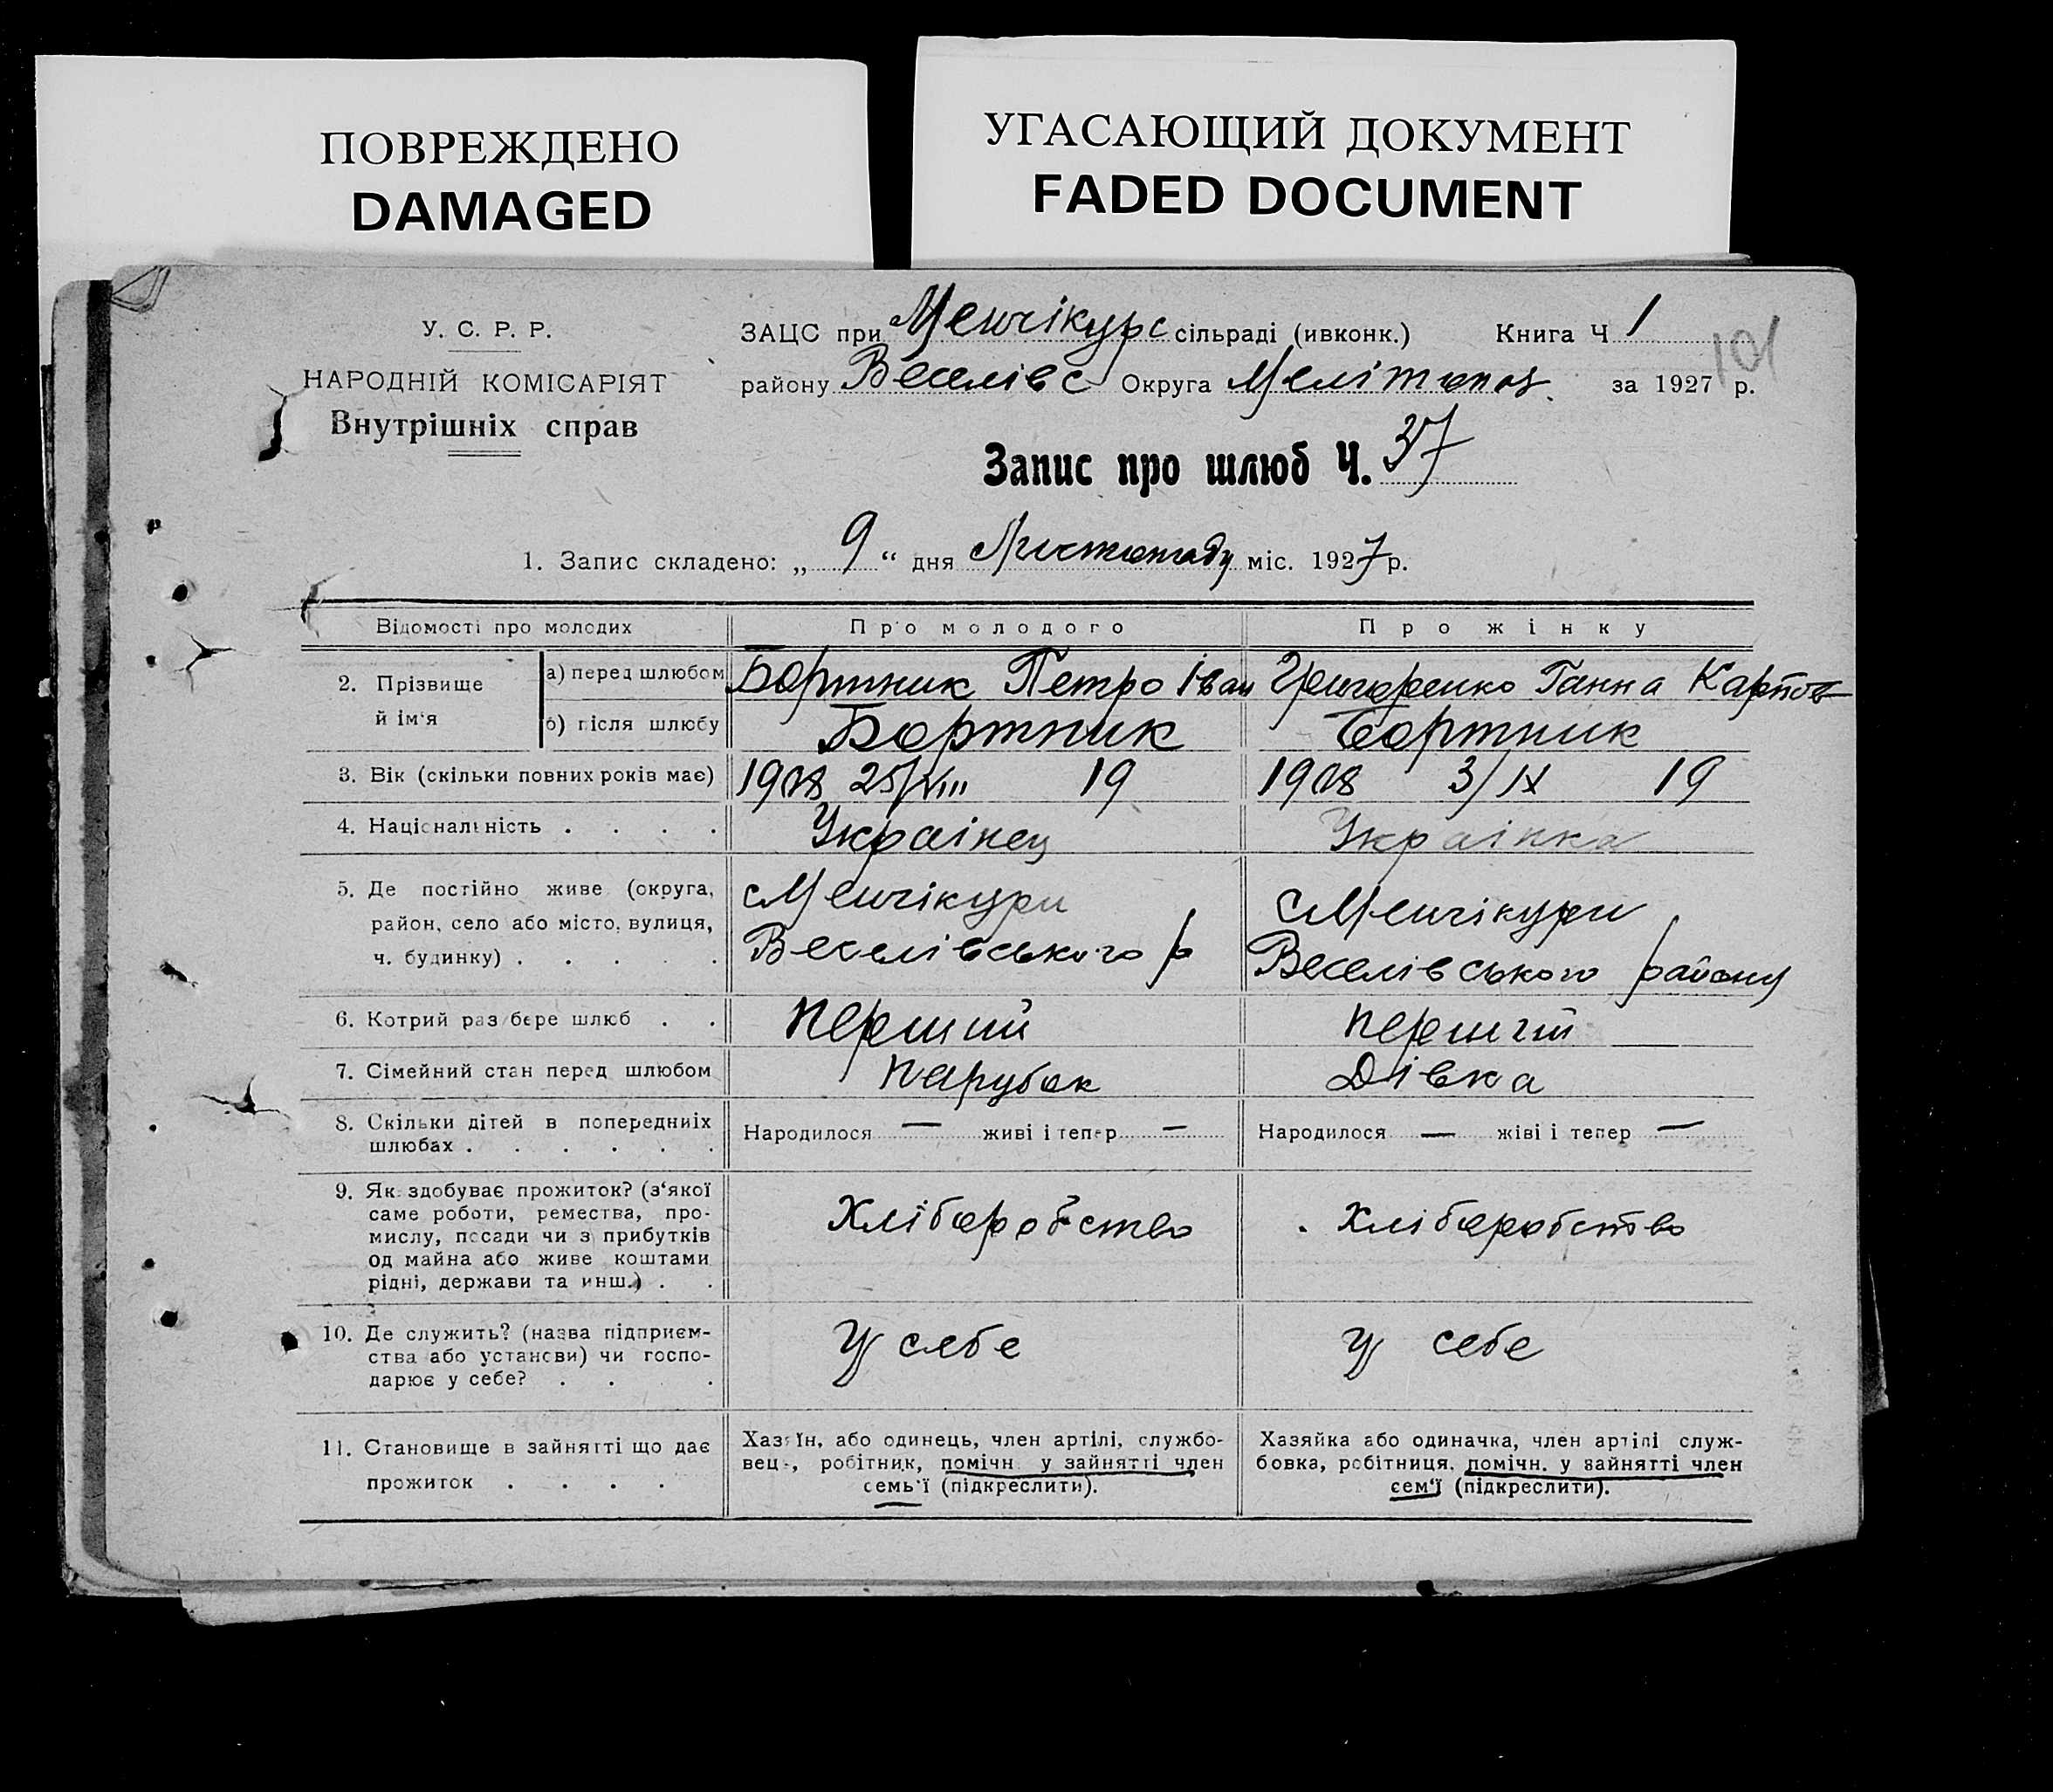 ПОВРЕЖДЕНО
DAMAGED
УГАСАЮЩИЙ ДОКУМЕНТ
FADED DOCUMENT
У. С. Р. Р.
НАРОДНІЙ КОМІСАРІЯТ
Внутрішніх справ
ЗАЦС при Менчікурс сільраді (ивконк.) Книга Ч 1
101
району Веселівс Округа Мелітопол. за 1927 р.
Запис про шлюб Ч. 37
1. Запис складено: „ 9 “ дня Листопаду міс. 1927 р.
Відомості про молодих Про молодого Про жінку
2. Прізвище й ім'я
а) перед шлюбом Бортник Петро Іван Григоренко Ганна Карпов
б) після шлюбу Бортник Бортник
3. Вік (скільки повних років має) 1908 25/VIII 19 1908 3/IX 19
4. Національність . . . . Українец Українка
5. Де постійно живе (округа,
район, село або місто, вулиця,
ч. будинку) . . . . .
с Менчікури
Веселівського р
с Менчікури
Веселівського району
6. Котрий раз бере шлюб . . перший перший
7. Сімейний стан перед шлюбом парубок Дівка
8. Скільки дітей в попередниіх
шлюбах . . . . . .
Народилося — живі і тепер — Народилося — жіві і тепер —
9. Як здобуває прожиток? (з'якої
саме роботи, ремества, про-
мислу, посади чи з прибутків
од майна або живе коштами
рідні, держави та инш.) . .
Хліборобство . Хліборобство
10. Де служить? (назва підприєм-
ства або установи) чи госпо-
дарює у себе? . . . .
У себе У себе
11. Становище в зайнятті що дає
прожиток . . . .
Хазяїн, або одинець, член артілі, службо-
вець, робітник, помічн у зайнятті член
семь'ї (підкреслити).
Хазяйка або одиначка, член артілі служ-
бовка, робітниця, помічн. у зайнятті член
сем'ї (підкреслити).